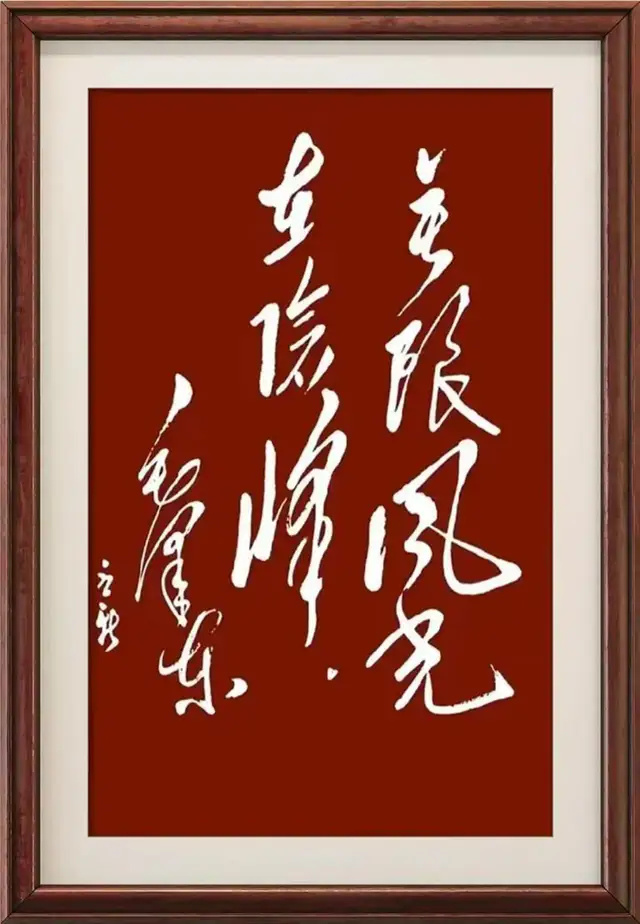 无限风光
在险峰.
毛泽东